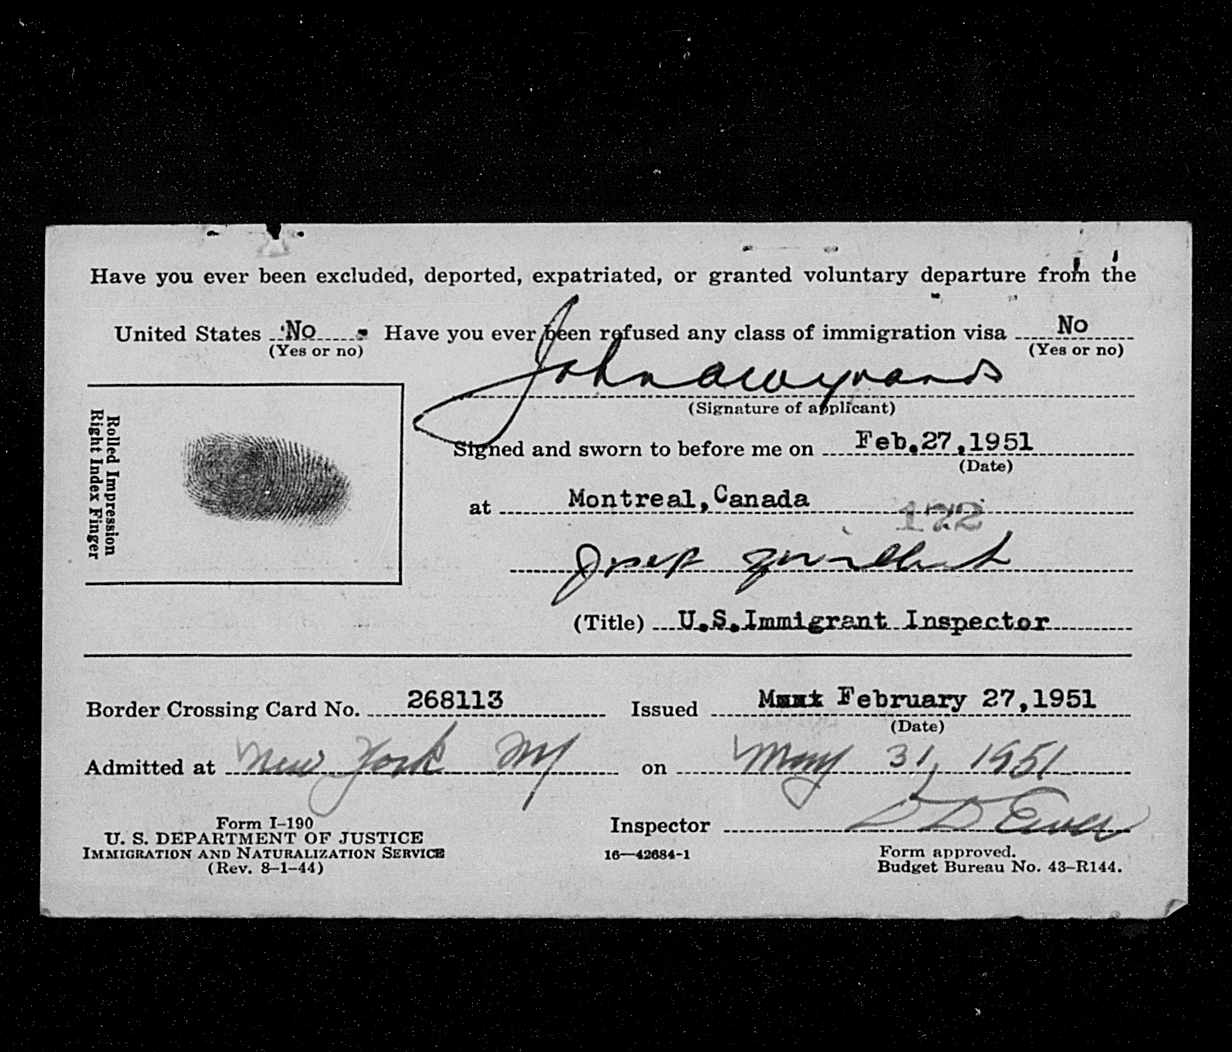 Have you ever been excluded, deported, expatriated, or granted voluntary departure from the
United States No Have you ever been refused any class of immigration visa No
(Yes or no) (Yes or no)
John A Wynands
(Signature of applicant)
Rolled Impression
Right Index Finger
Signed and sworn to before me on Feb.27,1951
(Date)
at Montreal,Canada
172
(Title) U.S.Immigrant Inspector
Border Crossing Card No. 268113 Issued February 27,1951
(Date)
Admitted at New York NY on May 31, 1951
Form I-190
U. S. DEPARTMENT OF JUSTICE
IMMIGRATION AND NATURALIZATION SERVICE
(Rev. 8-1-44)
Inspector
16—42684-1
Form approved.
Budget Bureau No. 43-R144.